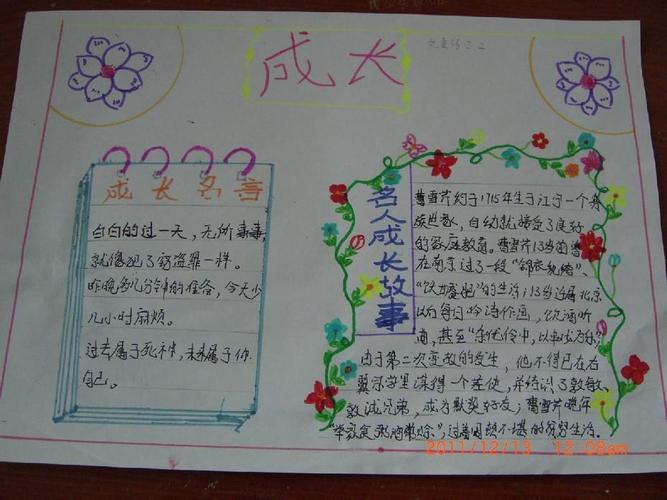 成长
成长名言
白白的过一天，无所事事，
就像犯了窃盗罪一样。
昨晚多几分钟的准备，今天少
几小时麻烦。
过去属于死神，未来属于你
自己。
名人成长故事
曹雪芹约于1715年生于江宁一个
族世家，自幼就接受了良好
的家庭教育。曹雪芹13岁前曾
在南京过了一段“锦衣纨绔”、
“饮甘餍肥”的生活；13岁迁居北京
以后每日吟诗作画，饮酒听
甚至“杂优伶中，以为乐”
由于第二次变故的发生，他不得已在右
翼宗学里谋得一个差使，并结识了敦敏、
敦诚兄弟，成为默契好友；曹雪芹晚年
“举家食粥”，过着困顿不堪的贫穷生活。
2011/12/13 12:08am